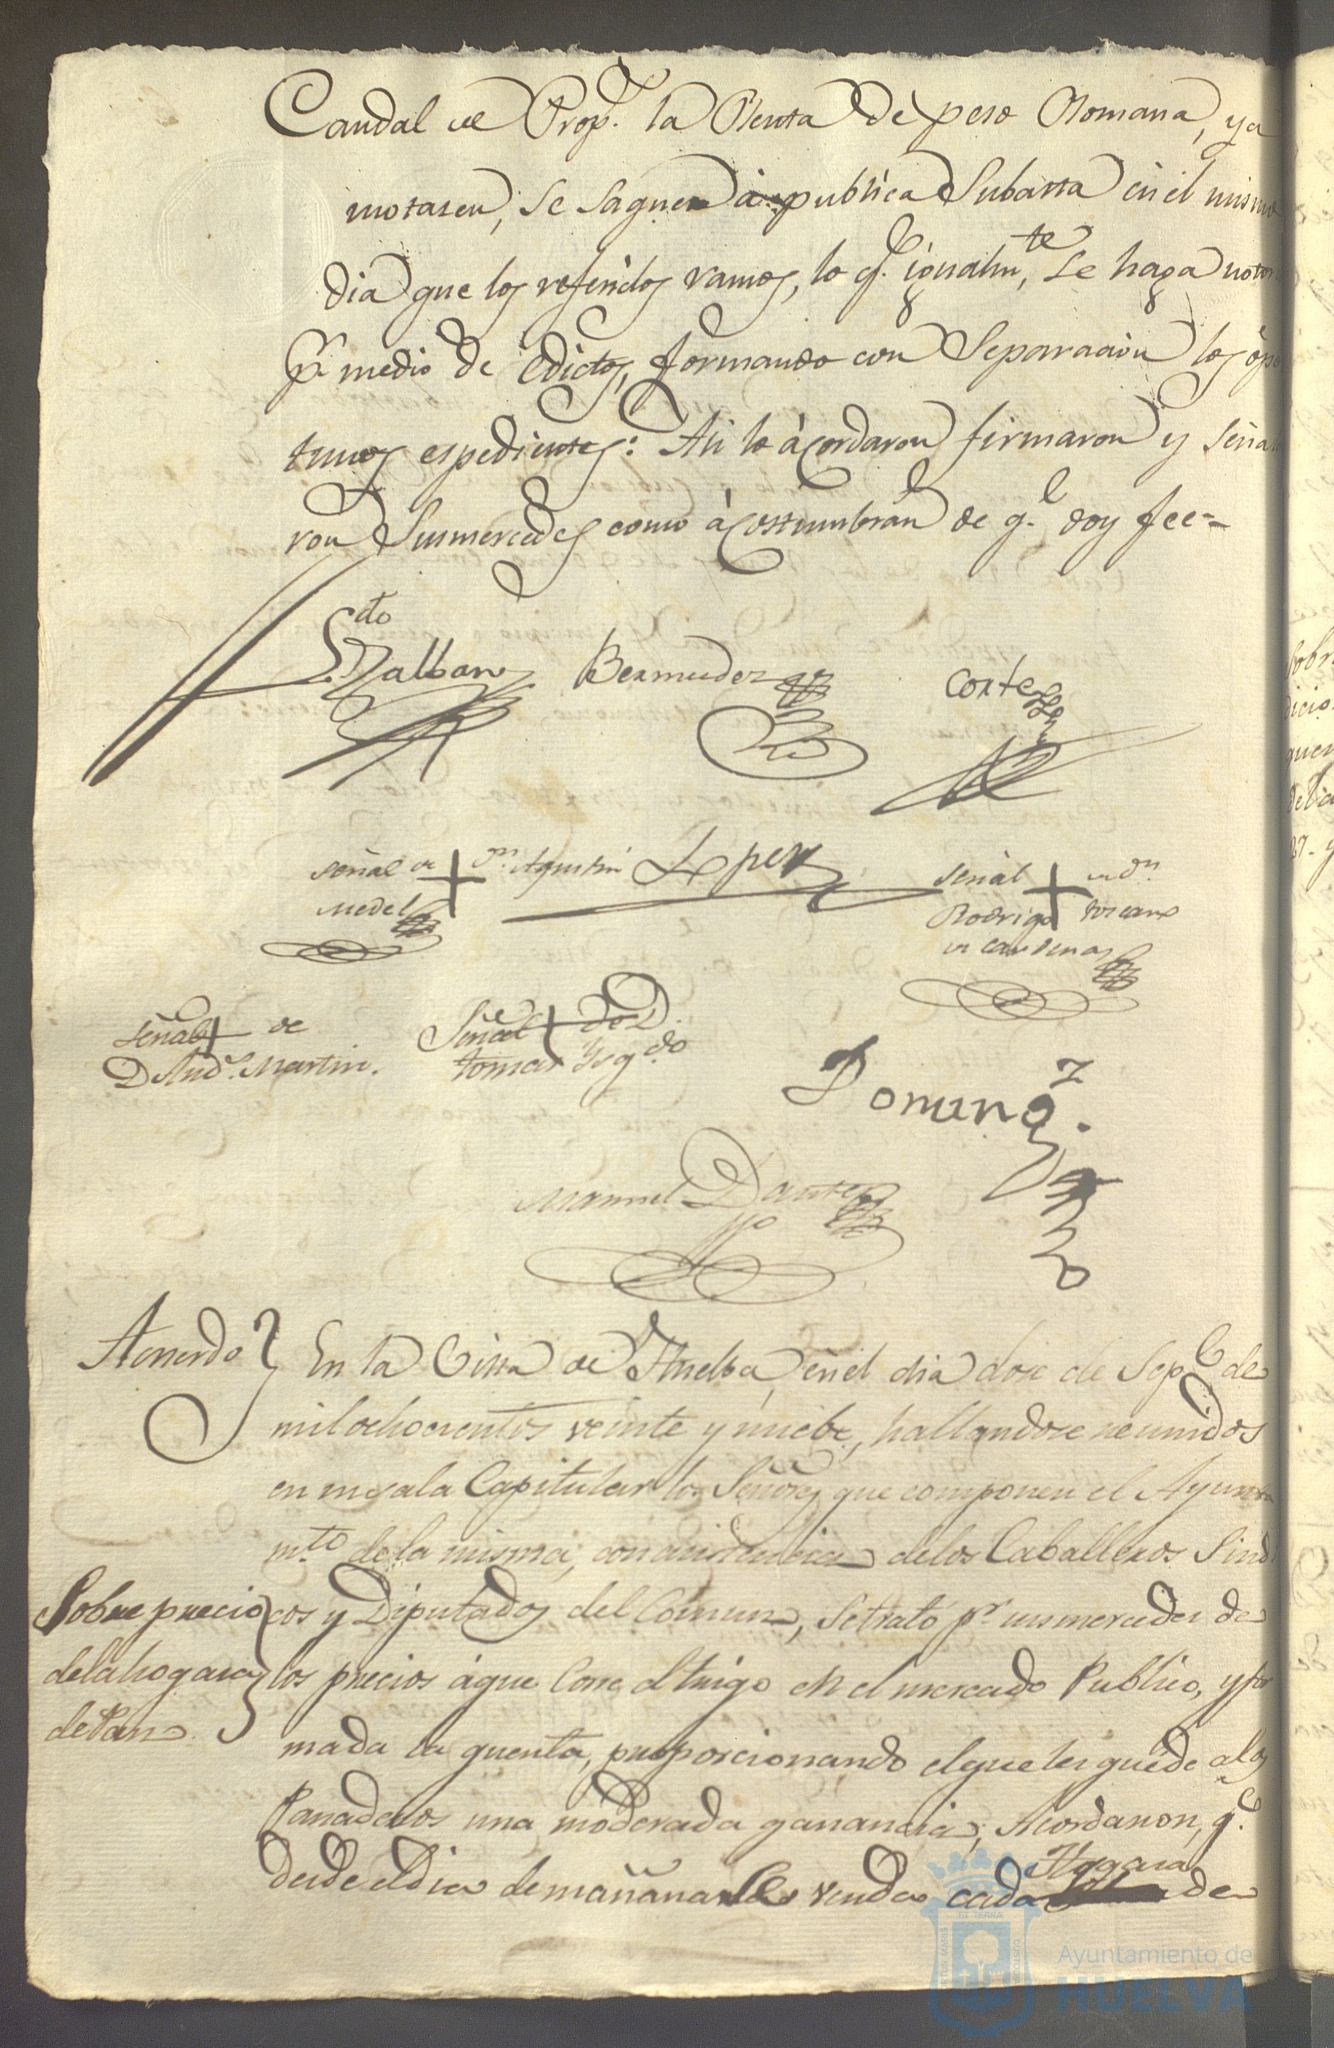 Caudal de Prop.s la Renta de peso Romana, y a
motasen, se saquen à publica Subasta en el mismo
dia que los referidos ramos, lo q.e igualm.te se haga noto
p.r medio de Edictos, formando con Separacion los opor
tunos espedientes: Asi lo àcordaron firmaron y señala
ron Susmercedes como àcostumbran de q.e doy fee=
Ldo
Bermudez
Cortes
Señal de + Dn. Agustin
Medel
Lopez
Señal + de Dn.
Rodrigo Toscano
de Cardenas
Señal + de
D And.s Martin.
Señal + de D.
Tomas Ysq.do
Doming.z
Manuel
Acuerdo
En la Villa de Huelba, en el dia doze de Sep.e de
mil ochocientos veinte y nuebe, hallandose reunidos
en su sala Capitular los Señores que componen el Ayunta
m.to de la misma, con asistencia de los Caballeros Sindi
Sobre precio
de la hogasa
de Pan
cos y Diputados del Comun, se trató p.r sus mercedes de
los precios à que corre el trigo en el mercado Publico, y for
mada la quenta, proporcionando el que les quede a los
Panaderos una moderada ganancia, Acordaron, q.e
desde el dia de mañana se venda cada Hogasa de
Ayuntamiento de
HUELVA